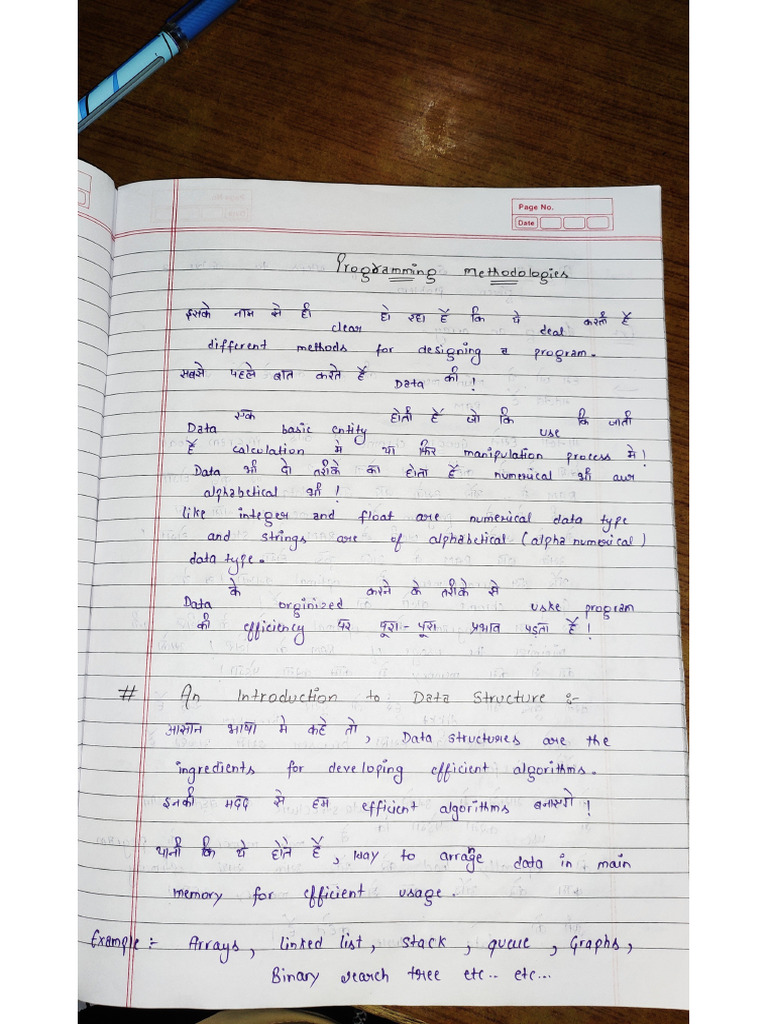 Page No.
Date
Programming Methodologies
इसके नाम से ही clear हो रहा हैं कि ये deal करती हैं
different methods for designing a program.
सबसे पहले बात करते हैं Data की !
Data एक basic entity होती हैं जो कि use कि जाती
हैं calculation मे या फिर manipulation process मे !
Data भी दो तरीके का होता हैं numerical भी aur
alphabetical भी !
like integer and float are numerical data type
and strings are of alphabetical (alpha numerical)
data type.
Data के orginized करने के तरीके से uske program
की efficiency पर पूरा-पूरा प्रभाव पड़ता हैं !
# An Introduction to Data Structure :-
आसान भाषा मे कहे तो, Data structures are the
ingredients for developing efficient algorithms.
इनकी मदद से हम efficient algorithms बनाएगे !
यानी कि ये होते हैं, way to arrange data in main
memory for efficient usage.
Example :- Arrays, linked list, stack, queue, Graphs,
Binary search tree etc.. etc...